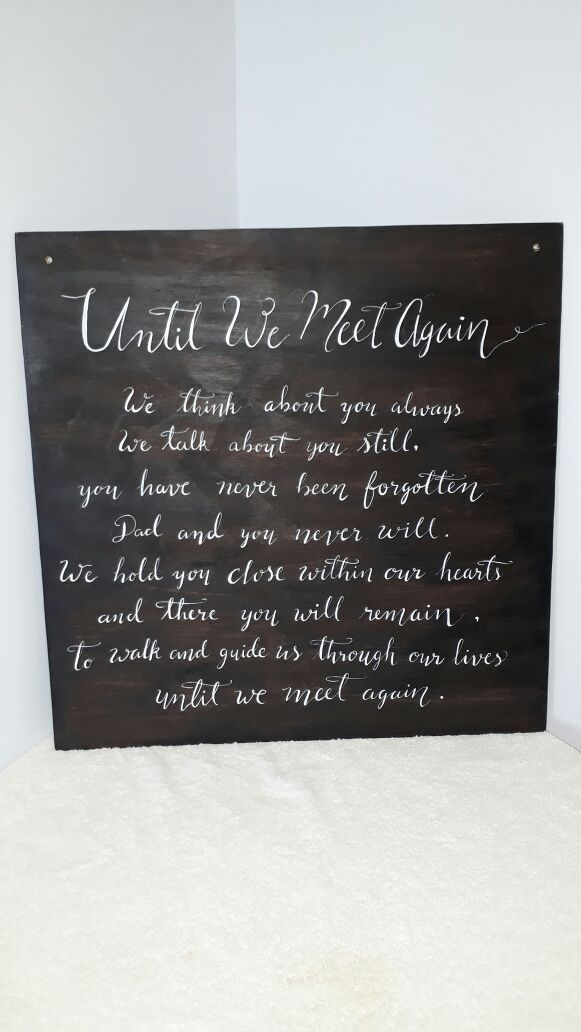 Until We Meet Again
We think about you always
We talk about you still.
you have never been forgotten
Dad and you never will.
We hold you close within our hearts
and there you will remain,
to walk and guide us through our lives
until we meet again.